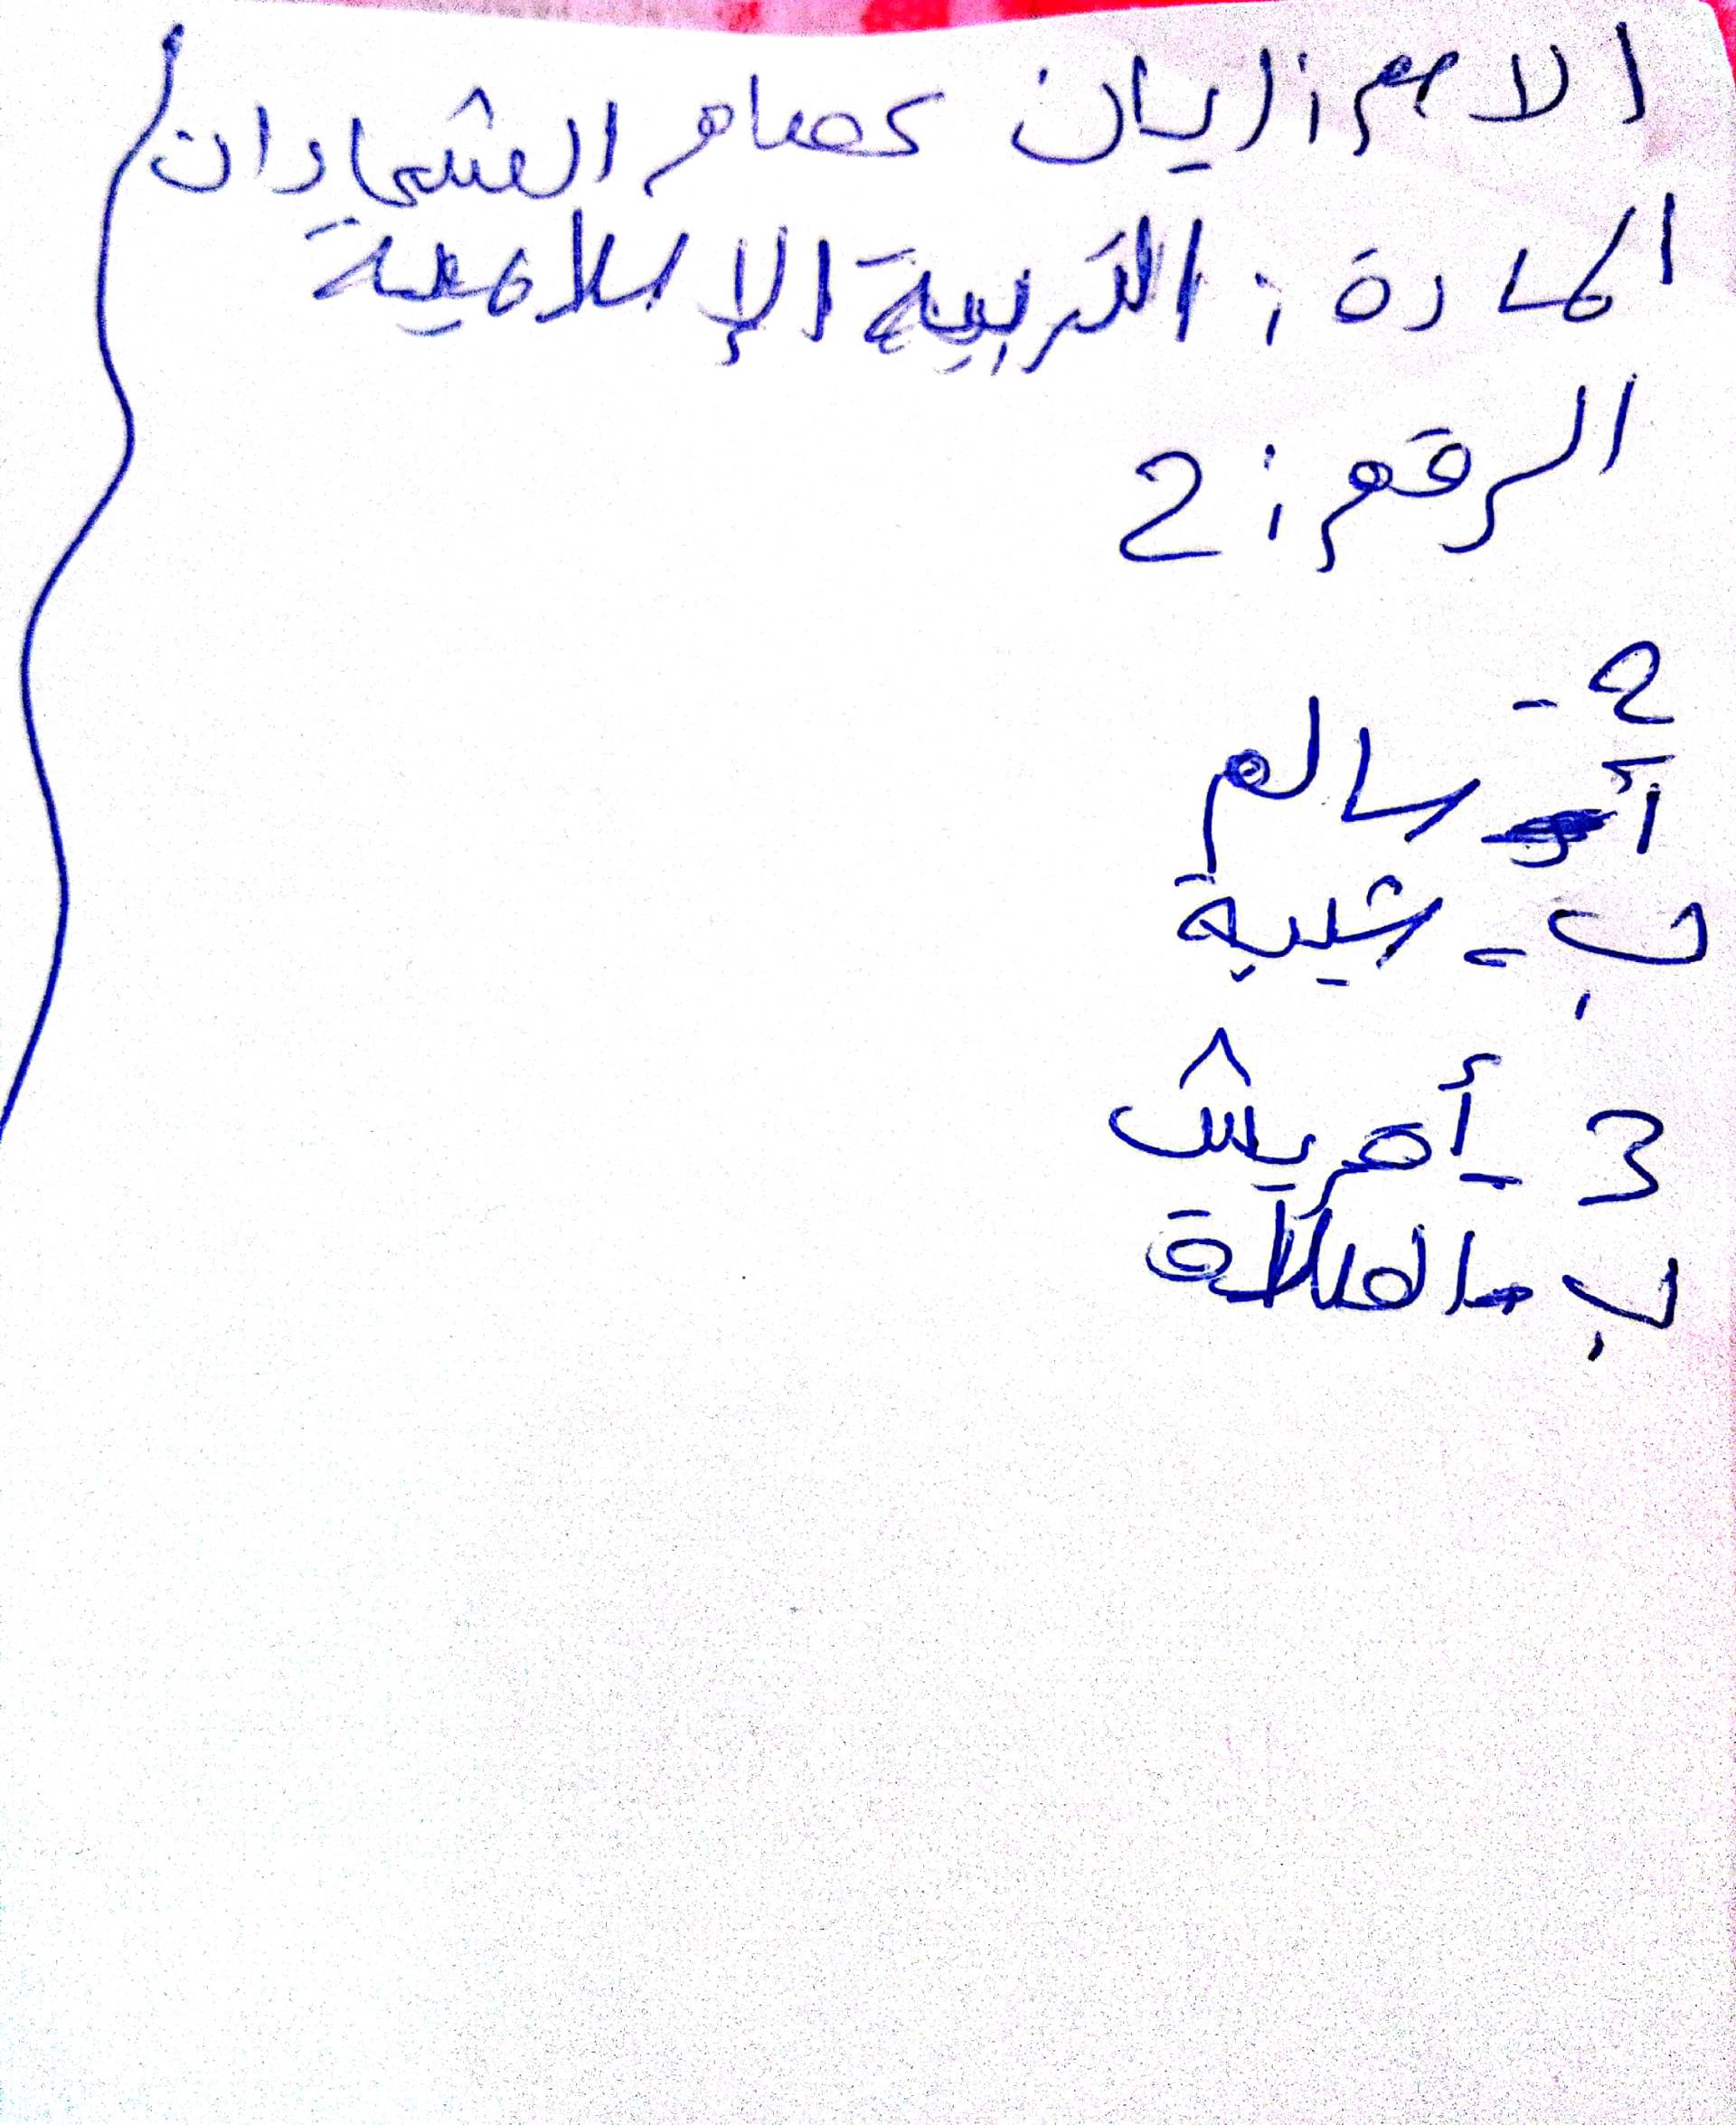 الاسم: ريان عصام الشحادات
المادة: التربية الإسلامية
الرقم: 2
2 -
أ - سالم
ب - شيبة
3 - أ قريش
ب - الصلاة